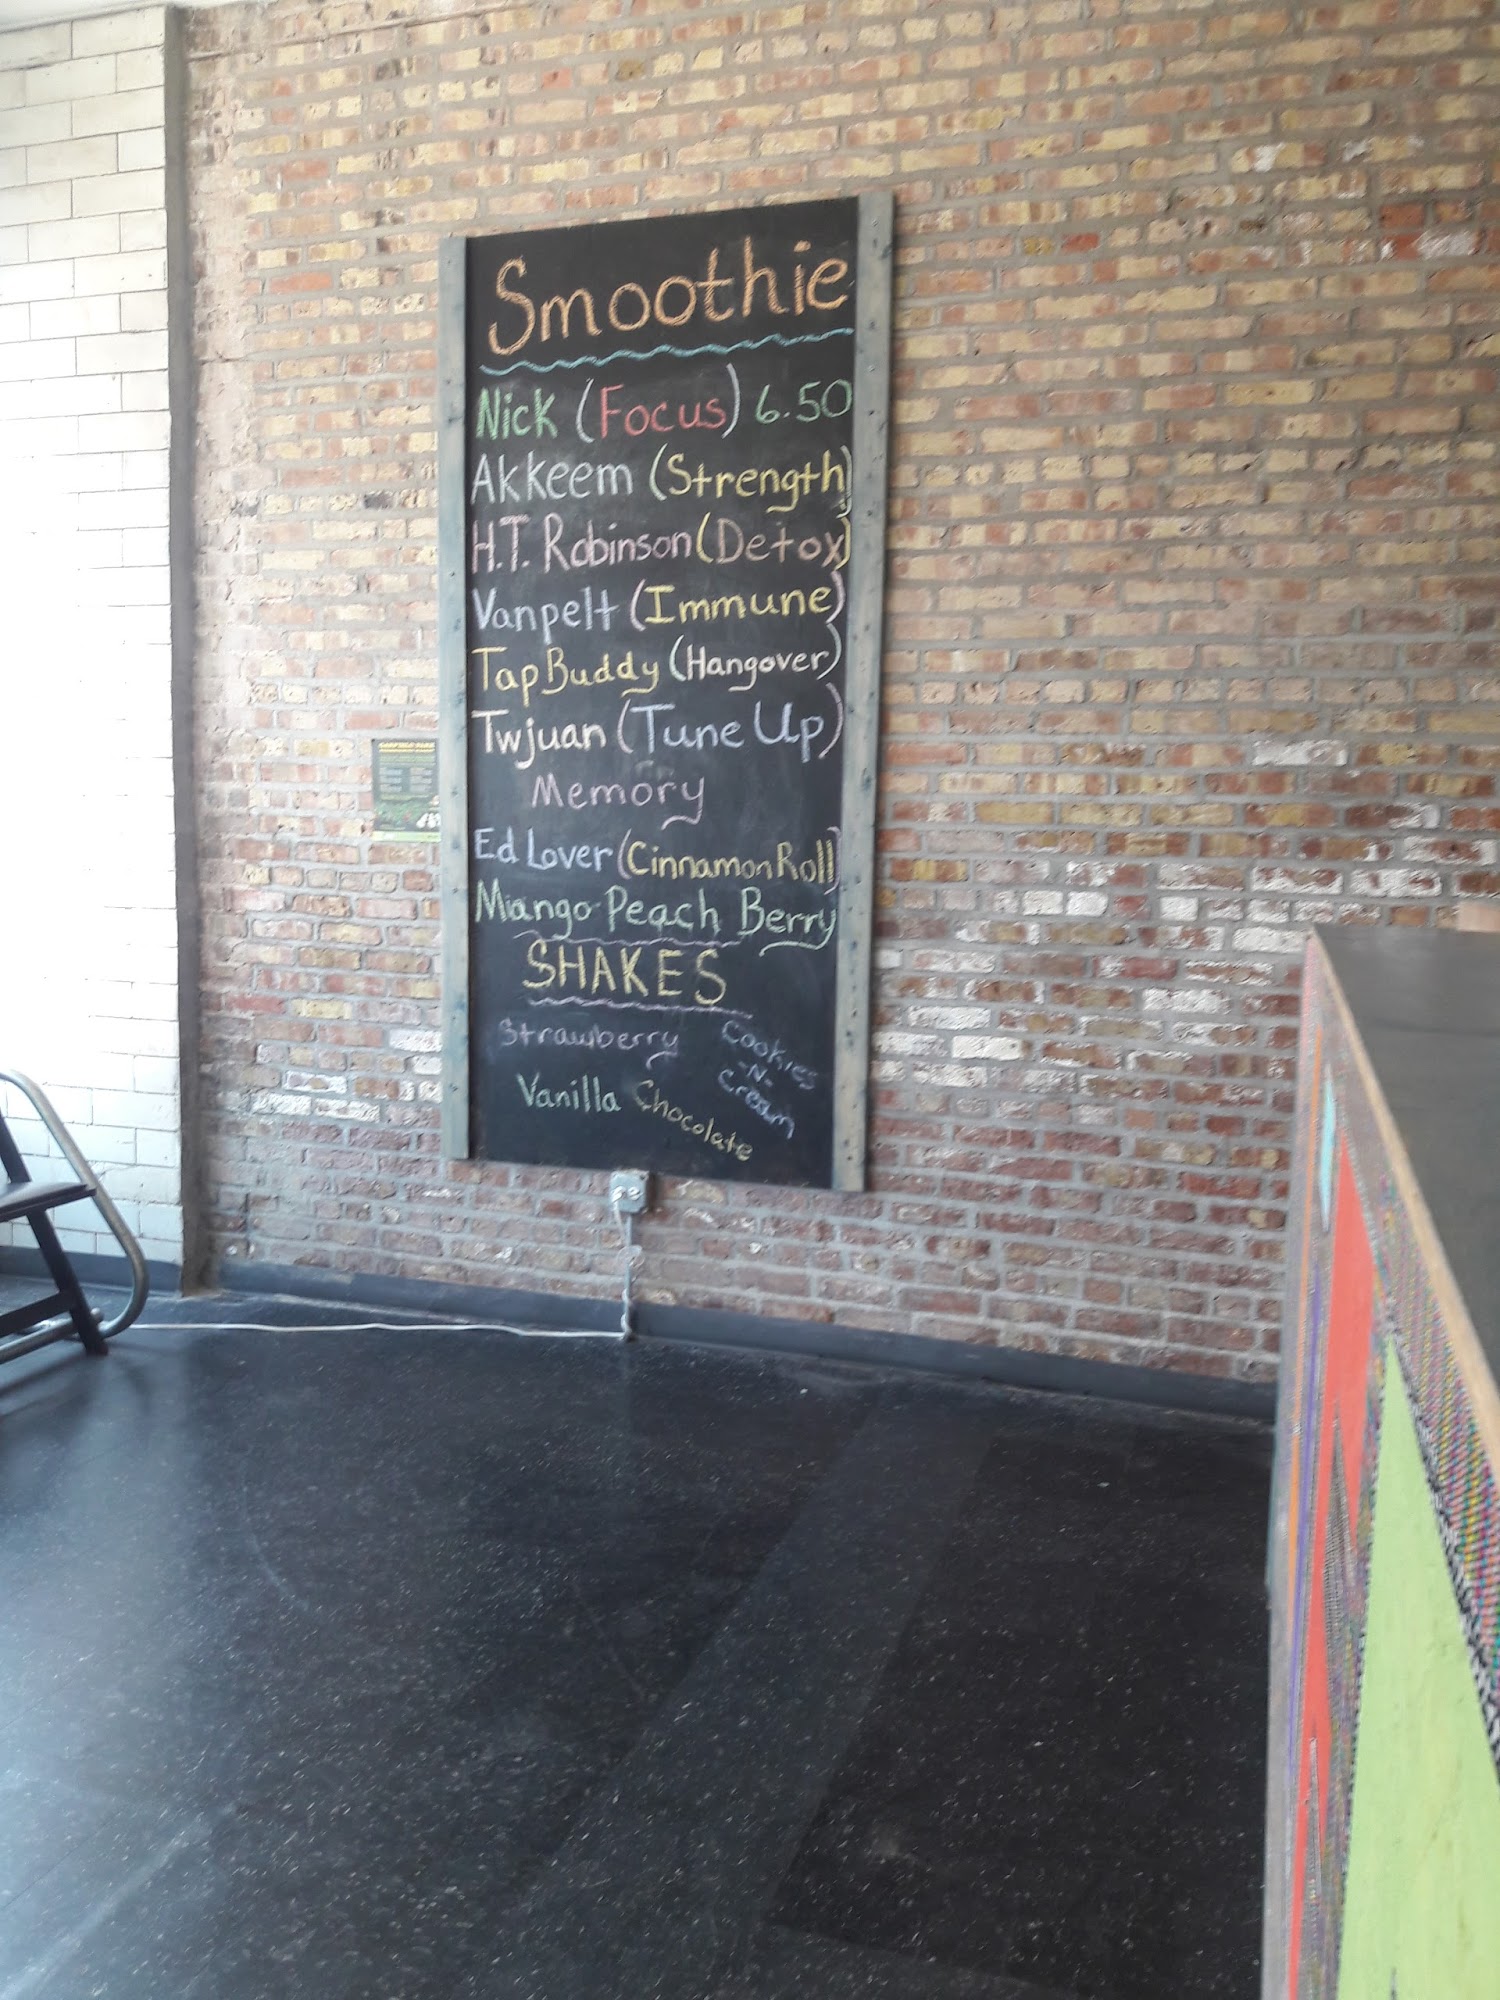 Smoothie
Nick (Focus) 6.50
Akkeem (Strength)
H.T. Robinson (Detox)
Vanpelt (Immune)
Tap Buddy (Hangover)
Twjuan (Tune Up)
Memory
Ed Lover (Cinnamon Roll)
Mango Peach Berry
SHAKES
Strawberry
Cookies
-N-
Cream
Vanilla
Chocolate